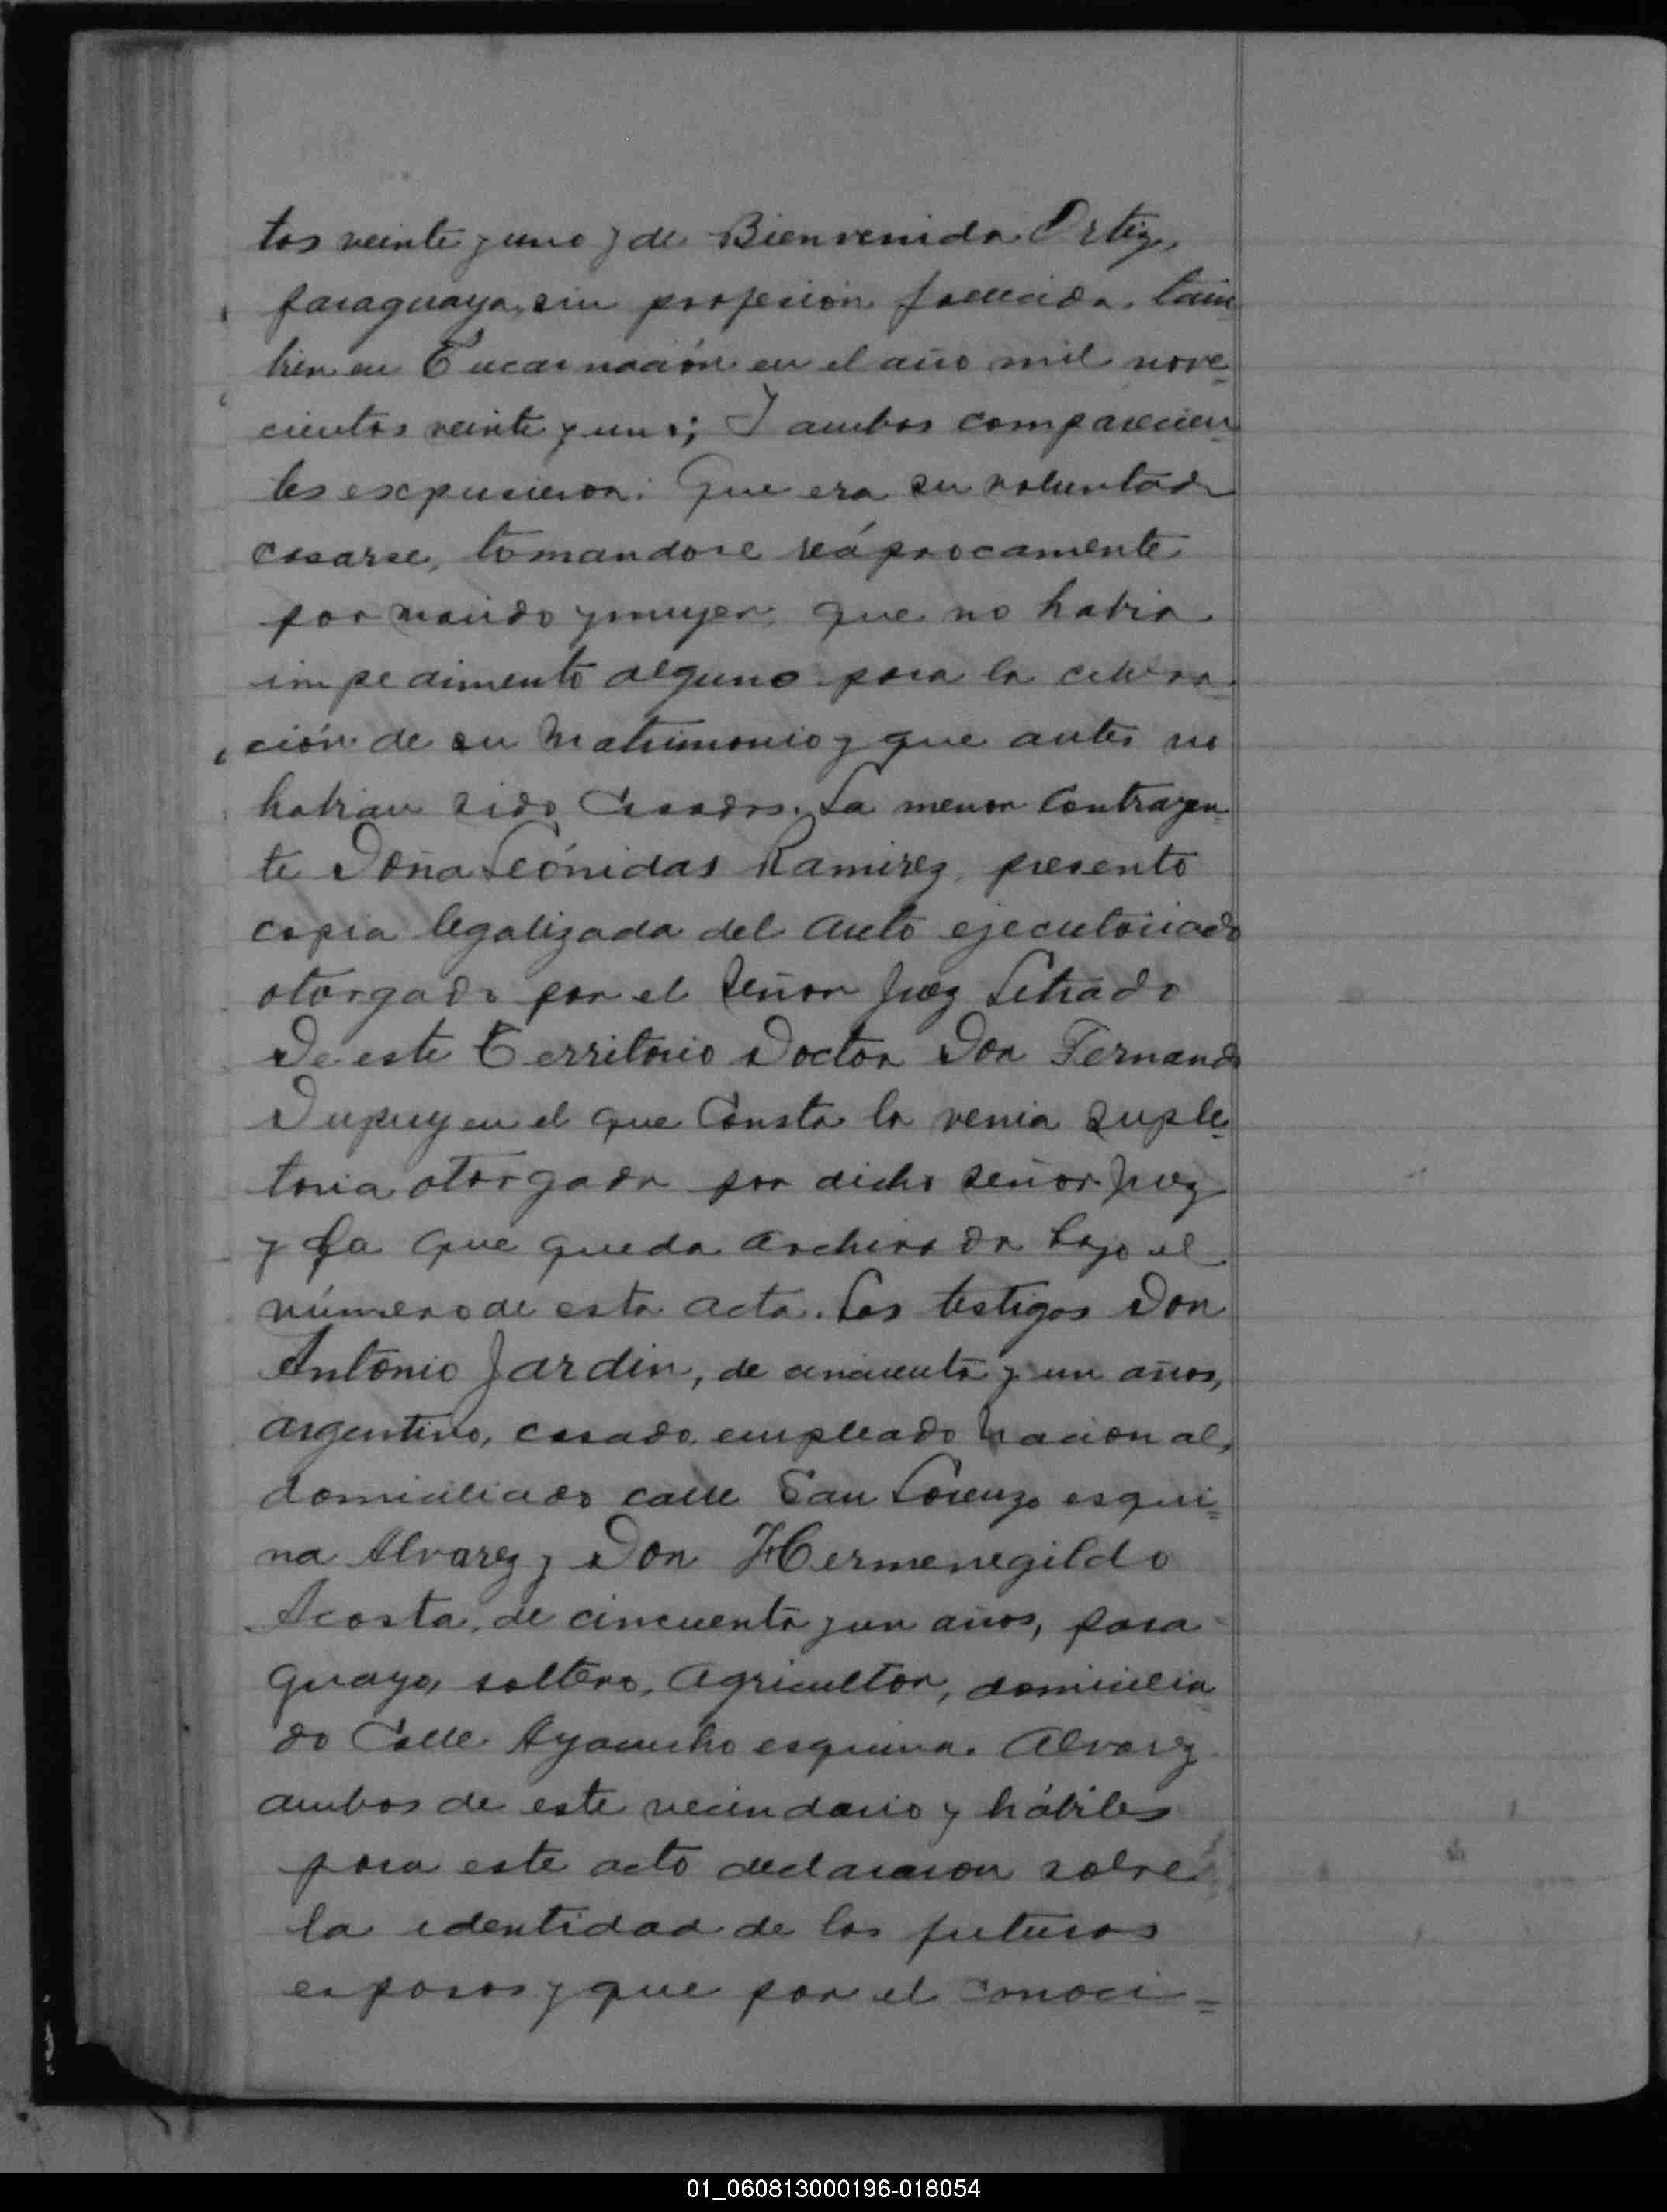 tos veinte y uno y de Bienvenida Ortiz,
paraguaya, sin profesión, fallecida, tam
bien en Encarnación en el año mil nove
cientos veinte y uno; Y ambos comparecien
tes expusieron: Que era su voluntad
casarse, tomandose recíprocamente
por marido y mujer, que no habia
impedimento alguno para la celebra
ción de su matrimonio y que antes no
habian sido casados. La menor contrayen
te Doña Leónidas Ramirez, presentó
copia legalizada del auto ejecutoriado
otorgado por el Señor Juez Letrado
de este Territorio Doctor Don Fernando
Dupuy en el que consta la venia suple
toria otorgada por dicho señor Juez
y la que queda archivada bajo el
número de esta acta. Los testigos Don
Antonio Jardin, de cincuenta y un años,
argentino, casado, empleado nacional,
domiciliado calle San Lorenzo esqui=
na Alvarez y Don Hermenegildo
Acosta, de cincuenta y un años, para-
guayo, soltero, agricultor, domicilia
do Calle Ayacucho esquina Alvarez
ambos de este vecindario y hábiles
para este acto declararon sobre
la identidad de los futuros
esposos y que por el conoci=
01_060813000196-018054